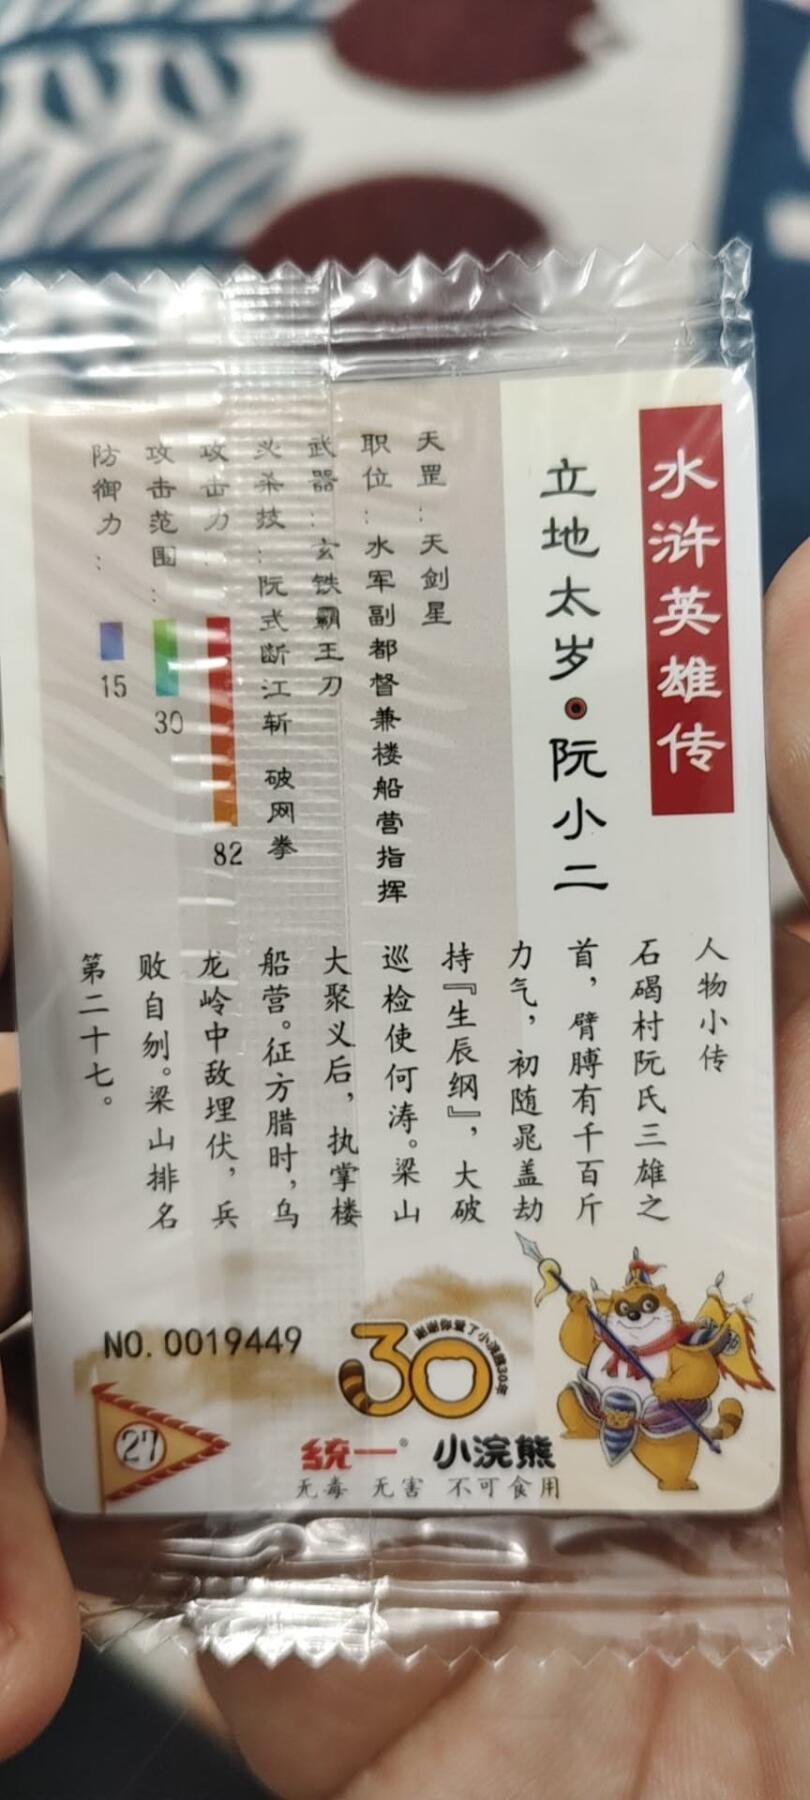 水浒英雄传
立地太岁·阮小二
天罡：天剑星
职位：水军副都督兼楼船营指挥
武器：玄铁霸王刀
必杀技：阮式断江斩 破网拳
攻击力：82
攻击范围：30
防御力：15
人物小传
石碣村阮氏三雄之
首，臂膊有千百斤
力气，初随晁盖劫
持『生辰纲』，大破
巡检使何涛。梁山
大聚义后，执掌楼
船营。征方腊时，乌
龙岭中敌埋伏，兵
败自刎。梁山排名
第二十七。
NO.0019449
30
谢谢你爱了小浣熊30年
27
统一® 小浣熊
无毒 无害 不可食用